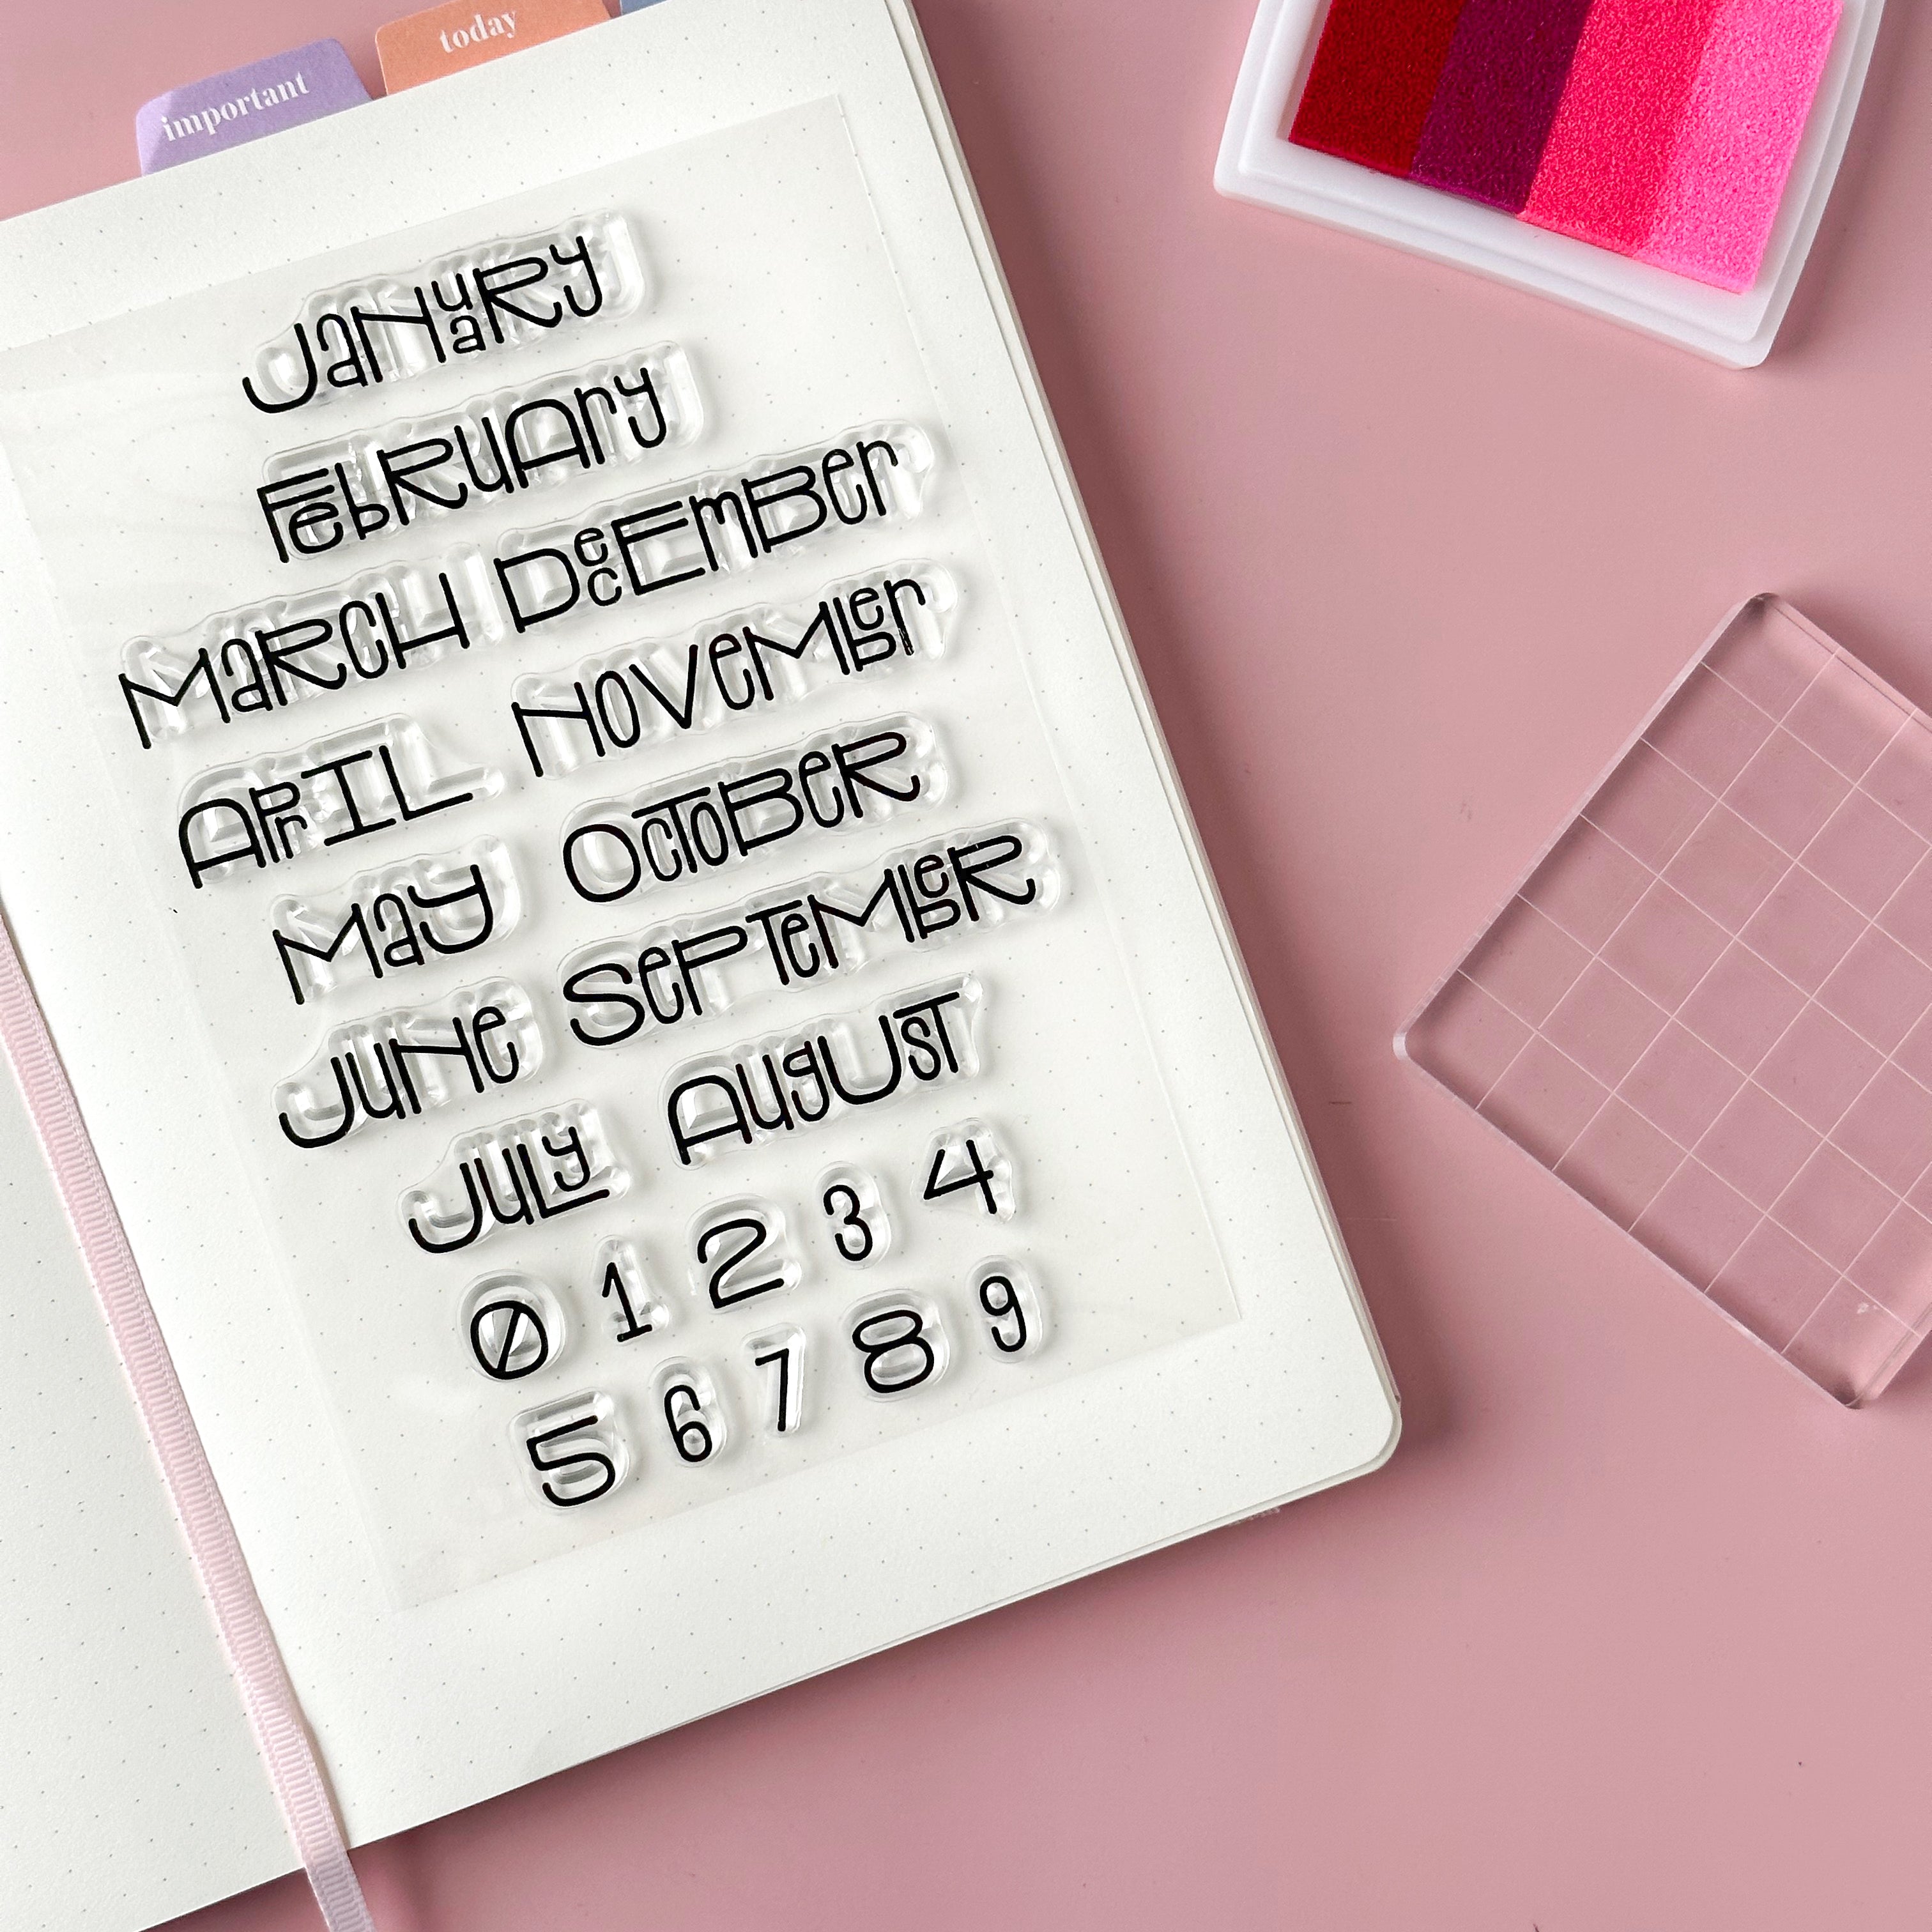 important
today
JaNuaRy
FebRuAry
MaRCH DecEmBer
APrIL NOVeMber
May OcToBeR
JuNe SePTeMbeR
JuLy AugUsT
0 1 2 3 4
5 6 7 8 9